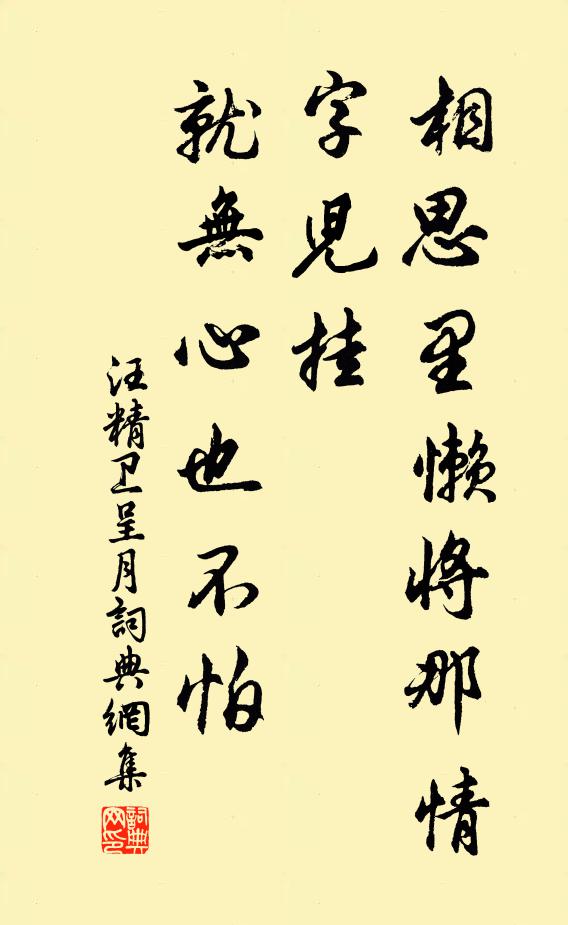 相思里懒将那情
字児挂
就無心也不怕
汪精卫呈月詞典網集
詞典
网印